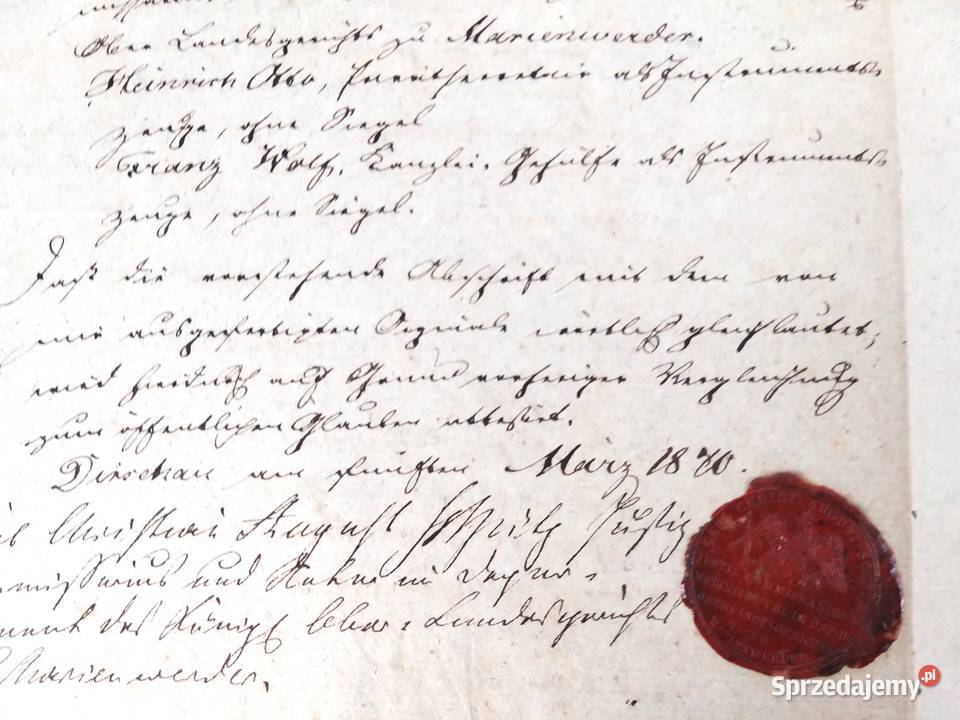 Ober Landesgerichts zu Marienwerder.
Heinrich Otto, Privatsecretair als Instruments-
zeuge, ohne Siegel
Franz Wolf, Kanzlei-Gehülfe als Instruments-
zeuge, ohne Siegel.
Daß die vorstehende Abschrift mit dem von
mir ausgefertigten Originale wörtlich gleichlautet,
wird hierdurch auf Grund vorheriger Vergleichung
zum öffentlichen Glauben attestirt.
Dirschau am fünften März 1840.
Christian August Justiz
missarius und Notar im Depar-
ment des Königl Ober-Landesgerichts
Marienwerder.
CHRIST AUGUST
MARIENWERDER
Sprzedajemy.pl